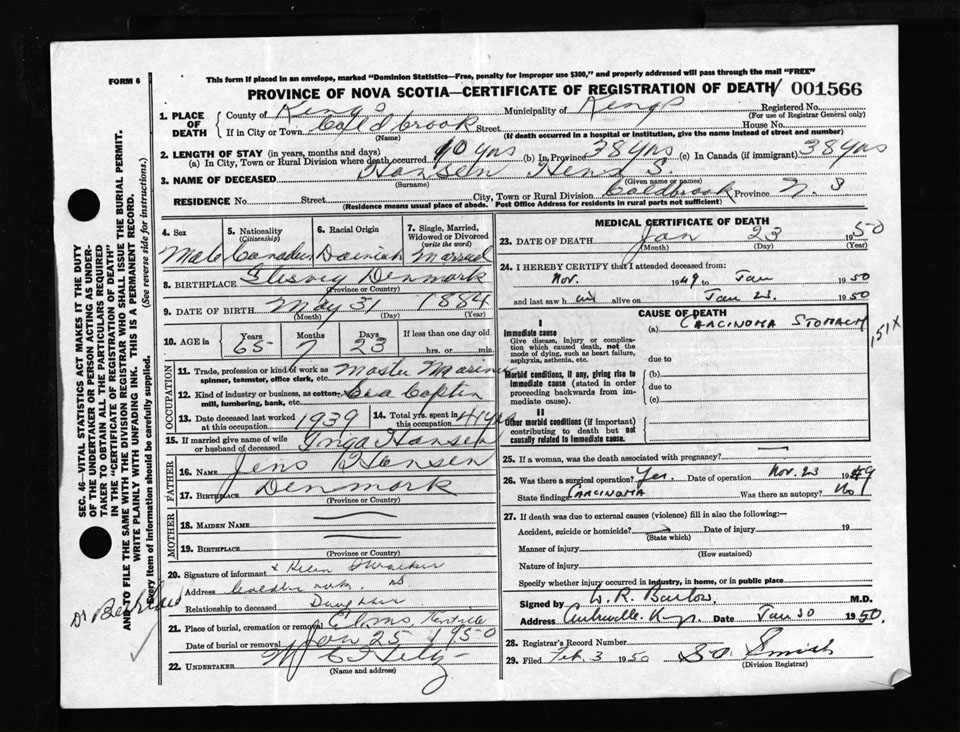 FORM 6
This form if placed in an envelope, marked "Dominion Statistics—Free, penalty for improper use $300," and properly addressed will pass through the mail "FREE"
PROVINCE OF NOVA SCOTIA—CERTIFICATE OF REGISTRATION OF DEATH 001566
SEC. 46—VITAL STATISTICS ACT MAKES IT THE DUTY
OF THE UNDERTAKER OR PERSON ACTING AS UNDER-
TAKER TO OBTAIN ALL THE PARTICULARS REQUIRED
IN THE "CERTIFICATE OF REGISTRATION OF DEATH"
AND TO FILE THE SAME WITH THE DIVISION REGISTRAR WHO SHALL ISSUE THE BURIAL PERMIT.
WRITE PLAINLY WITH UNFADING INK. THIS IS A PERMANENT RECORD.
Every item of Information should be carefully supplied. (See reverse side for instructions.)
1. PLACE OF DEATH County of Kings Municipality of Kings Registered No.
(For use of Registrar General only)
If in City or Town Coldbrook Street House No.
(Name) (If death occurred in a hospital or institution, give name instead of street and number)
2. LENGTH OF STAY (in years, months and days)
(a) In City, Town or Rural Division where death occurred 10 yrs (b) In Province 38 yrs (c) In Canada (if immigrant) 38 yrs
3. NAME OF DECEASED Hansen Hens S.
(Surname) (Given name or names)
RESIDENCE No. Street City, Town or Rural Division Coldbrook Province N. S
(Residence means usual place of abode. Post Office Address for residents in rural parts not sufficient)
4. Sex 5. Nationality (Citizenship) 6. Racial Origin 7. Single, Married, Widowed or Divorced (write the word)
Male Canadian Danish Married
8. BIRTHPLACE Denmark
(Province or Country)
9. DATE OF BIRTH May 31 1884
(Month) (Day) (Year)
10. AGE in Years Months Days If less than one day old
65 7 23 hrs. or min.
OCCUPATION
11. Trade, profession or kind of work as spinner, teamster, office clerk, etc. Master Mariner
12. Kind of industry or business, as cotton-mill, lumbering, bank, etc. Sea Coptin
13. Date deceased last worked at this occupation 1939 14. Total yrs. spent in this occupation 41 yrs
15. If married give name of wife or husband of deceased Inga Hansen
FATHER
16. Name Jens B Hansen
17. Birthplace Denmark
(Province or Country)
MOTHER
18. Maiden Name
19. Birthplace
(Province or Country)
20. Signature of informant x Helen
Address NS
Relationship to deceased Daughter
21. Place of burial, cremation or removal Elms Kentville
Date of burial or removal Jan 25 1950
22. UNDERTAKER
(Name and address)
MEDICAL CERTIFICATE OF DEATH
23. DATE OF DEATH Jan 23 1950
(Month) (Day) (Year)
24. I HEREBY CERTIFY that I attended deceased from:
Nov. 1949 to Jan 1950
and last saw him alive on Jan 23. 1950
CAUSE OF DEATH
I
Immediate cause
Give disease, injury or complication which caused death, not the mode of dying, such as heart failure, asphyxia, asthenia, etc.
(a) CARCINOMA STOMACH 151X
due to
Morbid conditions, if any, giving rise to immediate cause (stated in order proceeding backwards from immediate cause).
(b)
due to
(c)
II
Other morbid conditions (if important) contributing to death but not causally related to immediate cause.
25. If a woman, was the death associated with pregnancy?
26. Was there a surgical operation? Yes. Date of operation Nov. 23 1949
State findings CARCINOMA Was there an autopsy? No
27. If death was due to external causes (violence) fill in also the following:—
Accident, suicide or homicide? Date of injury 19
(State which)
Manner of injury
(How sustained)
Nature of injury
Specify whether injury occurred in industry, in home, or in public place
Signed by W. R. M.D.
Address Date Jan 30 1950.
28. Registrar's Record Number
29. Filed Feb. 3 1950 Smith
(Division Registrar)
Dr